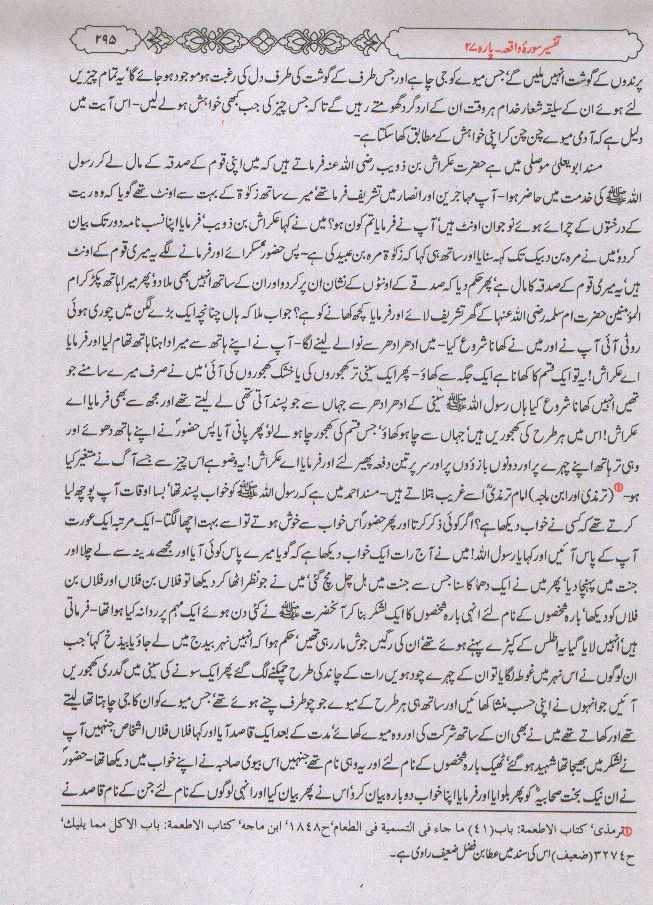 تفسیر سورۂ واقعہ۔ پارہ ۲۷
۲۹۵
پرندوں کے گوشت انہیں ملیں گے' جس میوے کو جی چاہے اور جس طرف کے گوشت کی طرف دل کی رغبت ہو موجود ہو جائے گا' یہ تمام چیزیں
لئے ہوئے ان کے سلیقہ شعار خدام ہر وقت ان کے ارد گرد گھومتے رہیں گے تاکہ جس چیز کی جب کبھی خواہش ہو لے لیں- اس آیت میں
دلیل ہے کہ آدمی میوے چن چن کر اپنی خواہش کے مطابق کھا سکتا ہے-
مسند ابو یعلیٰ موصلی میں ہے حضرت عکراش بن ذویب رضی اللہ عنہ فرماتے ہیں کہ میں اپنی قوم کے صدقہ کے مال لے کر رسول
اللہ ﷺ کی خدمت میں حاضر ہوا- آپ مہاجرین اور انصار میں تشریف فرما تھے' میرے ساتھ زکوٰۃ کے بہت سے اونٹ تھے گویا کہ وہ ریت
کے درختوں کے چرائے ہوئے نوجوان اونٹ ہیں' آپ نے فرمایا تم کون ہو؟ میں نے کہا عکراش بن ذویب' فرمایا اپنا نسب نامہ دور تک بیان
کر دو' میں نے مرہ بن دبیک تک کہہ سنایا اور ساتھ ہی کہا کہ زکوٰۃ مرہ بن عبید کی ہے- پس حضورؐ مسکرائے اور فرمانے لگے یہ میری قوم کے اونٹ
ہیں' یہ میری قوم کے صدقہ کا مال ہے' پھر حکم دیا کہ صدقے کے اونٹوں کے نشان ان پر کر دو اور ان کے ساتھ انہیں بھی ملا دو' پھر میرا ہاتھ پکڑ کر ام
المؤمنین حضرت ام سلمہ رضی اللہ عنہا کے گھر تشریف لائے اور فرمایا کچھ کھانے کو ہے؟ جواب ملا کہ ہاں چنانچہ ایک بڑے لگن میں چوری ہوئی
روٹی آئی آپ نے اور میں نے کھانا شروع کیا- میں ادھر ادھر سے نوالے لینے لگا- آپ نے اپنے ہاتھ سے میرا داہنا ہاتھ تھام لیا اور فرمایا
اے عکراش! یہ تو ایک قسم کا کھانا ہے ایک جگہ سے کھاؤ- پھر ایک سینی تر کھجوروں کی یا خشک کھجوروں کی آئی' میں نے صرف میرے سامنے جو
تھیں انہیں کھانا شروع کیا ہاں رسول اللہ ﷺ سینی کے ادھر ادھر سے جہاں سے جو پسند آتی تھی لے لیتے تھے اور مجھ سے بھی فرمایا اے
عکراش! اس میں ہر طرح کی کھجوریں ہیں' جہاں سے چاہو کھاؤ' جس قسم کی کھجور چاہو لے لو' پھر پانی آیا پس حضورؐ نے اپنے ہاتھ دھوئے اور
وہی تر ہاتھ اپنے چہرے پر اور دونوں بازوؤں پر اور سر پر تین دفعہ پھیر لئے اور فرمایا اے عکراش! یہ وضو ہے اس چیز سے جسے آگ نے متغیر کیا
ہو-① (ترمذی اور ابن ماجہ) امام ترمذیؒ اسے غریب بتلاتے ہیں- مسند احمد میں ہے کہ رسول اللہ ﷺ کو خواب پسند تھا' بسا اوقات آپ پوچھ لیا
کرتے تھے کہ کسی نے خواب دیکھا ہے؟ اگر کوئی ذکر کرتا اور پھر حضورؐ اس خواب سے خوش ہوتے تو اسے بہت اچھا لگتا- ایک مرتبہ ایک عورت
آپ کے پاس آئیں اور کہا یا رسول اللہ! میں نے آج رات ایک خواب دیکھا ہے کہ گویا میرے پاس کوئی آیا اور مجھے مدینہ سے لے چلا اور
جنت میں پہنچا دیا' پھر میں نے ایک دھماکا سنا جس سے جنت میں ہل چل مچ گئی' میں نے جو نظر اٹھا کر دیکھا تو فلاں بن فلاں اور فلاں بن
فلاں کو دیکھا' بارہ شخصوں کے نام لئے انہی بارہ شخصوں کا ایک لشکر بنا کر آنحضرت ﷺ نے کئی دن ہوئے ایک مہم پر روانہ کیا ہوا تھا- فرماتی
ہیں' انہیں لایا گیا یہ اطلس کے کپڑے پہنے ہوئے تھے' ان کی رگیں جوش مار رہی تھیں' حکم ہوا کہ انہیں نہر بیدج میں لے جاؤ یا بیذخ کہا' جب
ان لوگوں نے اس نہر میں غوطہ لگایا تو ان کے چہرے چودہویں رات کے چاند کی طرح چمکنے لگ گئے پھر ایک سونے کی سینی میں گدری کھجوریں
آئیں جو انہوں نے اپنی حسب منشا کھائیں اور ساتھ ہی ہر طرح کے میوے جو چو طرف چنے ہوئے تھے' جس میوے کو ان کا جی چاہتا تھا لیتے
تھے اور کھاتے تھے میں نے بھی ان کے ساتھ شرکت کی اور وہ میوے کھائے' مدت کے بعد ایک قاصد آیا اور کہا فلاں فلاں اشخاص جنہیں آپ
نے لشکر میں بھیجا تھا شہید ہو گئے' ٹھیک بارہ شخصوں کے نام لئے اور یہ وہی نام تھے جنہیں اس بیوی صاحبہ نے اپنے خواب میں دیکھا تھا- حضورؐ
نے ان نیک بخت صحابیہؓ کو پھر بلوایا اور فرمایا اپنا خواب دوبارہ بیان کرو' اس نے پھر بیان کیا اور انہی لوگوں کے نام لئے جن کے نام قاصد نے
①ترمذی' کتاب الاطعمة: باب (٤١) ما جاء فی التسمیة فی الطعام' ح١٨٤٨' ابن ماجه' کتاب الاطعمة: باب الاکل مما یلیك'
ح٣٢٧٤ (ضعیف) اس کی سند میں عطا بن فضل ضعیف راوی ہے۔